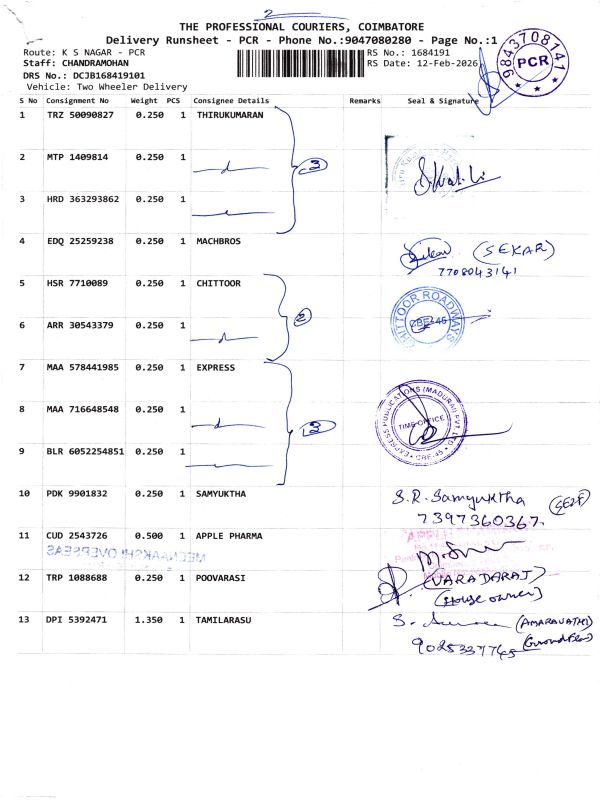 2
THE PROFESSIONAL COURIERS, COIMBATORE
Delivery Runsheet - PCR - Phone No.:9047080280 - Page No.:1
Route: K S NAGAR - PCR
RS No.: 1684191
Staff: CHANDRAMOHAN
RS Date: 12-Feb-2026
DRS No.: DCJB168419101
Vehicle: Two Wheeler Delivery
9843708141
PCR
S No Consignment No Weight PCS Consignee Details Remarks Seal & Signature
1 TRZ 50090827 0.250 1 THIRUKUMARAN
2 MTP 1409814 0.250 1
3
3 HRD 363293862 0.250 1
4 EDQ 25259238 0.250 1 MACHBROS
(SEKAR)
7708043141
5 HSR 7710089 0.250 1 CHITTOOR
2
CHITTOOR ROADWAYS
CBE-45
6 ARR 30543379 0.250 1
7 MAA 578441985 0.250 1 EXPRESS
8 MAA 716648548 0.250 1
3
EXPRESS PUBLICATIONS (MADURAI) PVT LTD
TIME OFFICE
CBE-45
9 BLR 6052254851 0.250 1
10 PDK 9901832 0.250 1 SAMYUKTHA
S.R. Samyuktha (SELF)
7397360367.
11 CUD 2543726 0.500 1 APPLE PHARMA
MEENAAKSHI OVERSEAS
12 TRP 1088688 0.250 1 POOVARASI
(VARADARAJ)
[House owner]
13 DPI 5392471 1.350 1 TAMILARASU
(AMARAVATHI)
9025337745